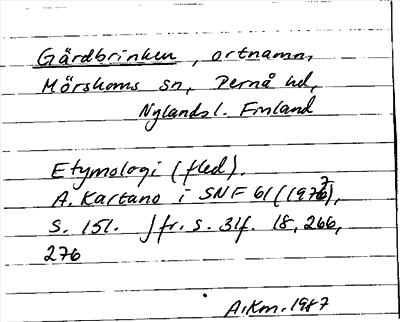 Gårdbrinken, ortnamn,
Mörskoms sn, Pernå hd,
Nylands l. Finland
Etymologi (fled).
A. Kartano i SNF 61 (1977),
s. 151. Jfr. s. 31f. 18, 266,
276
A.Km. 1987